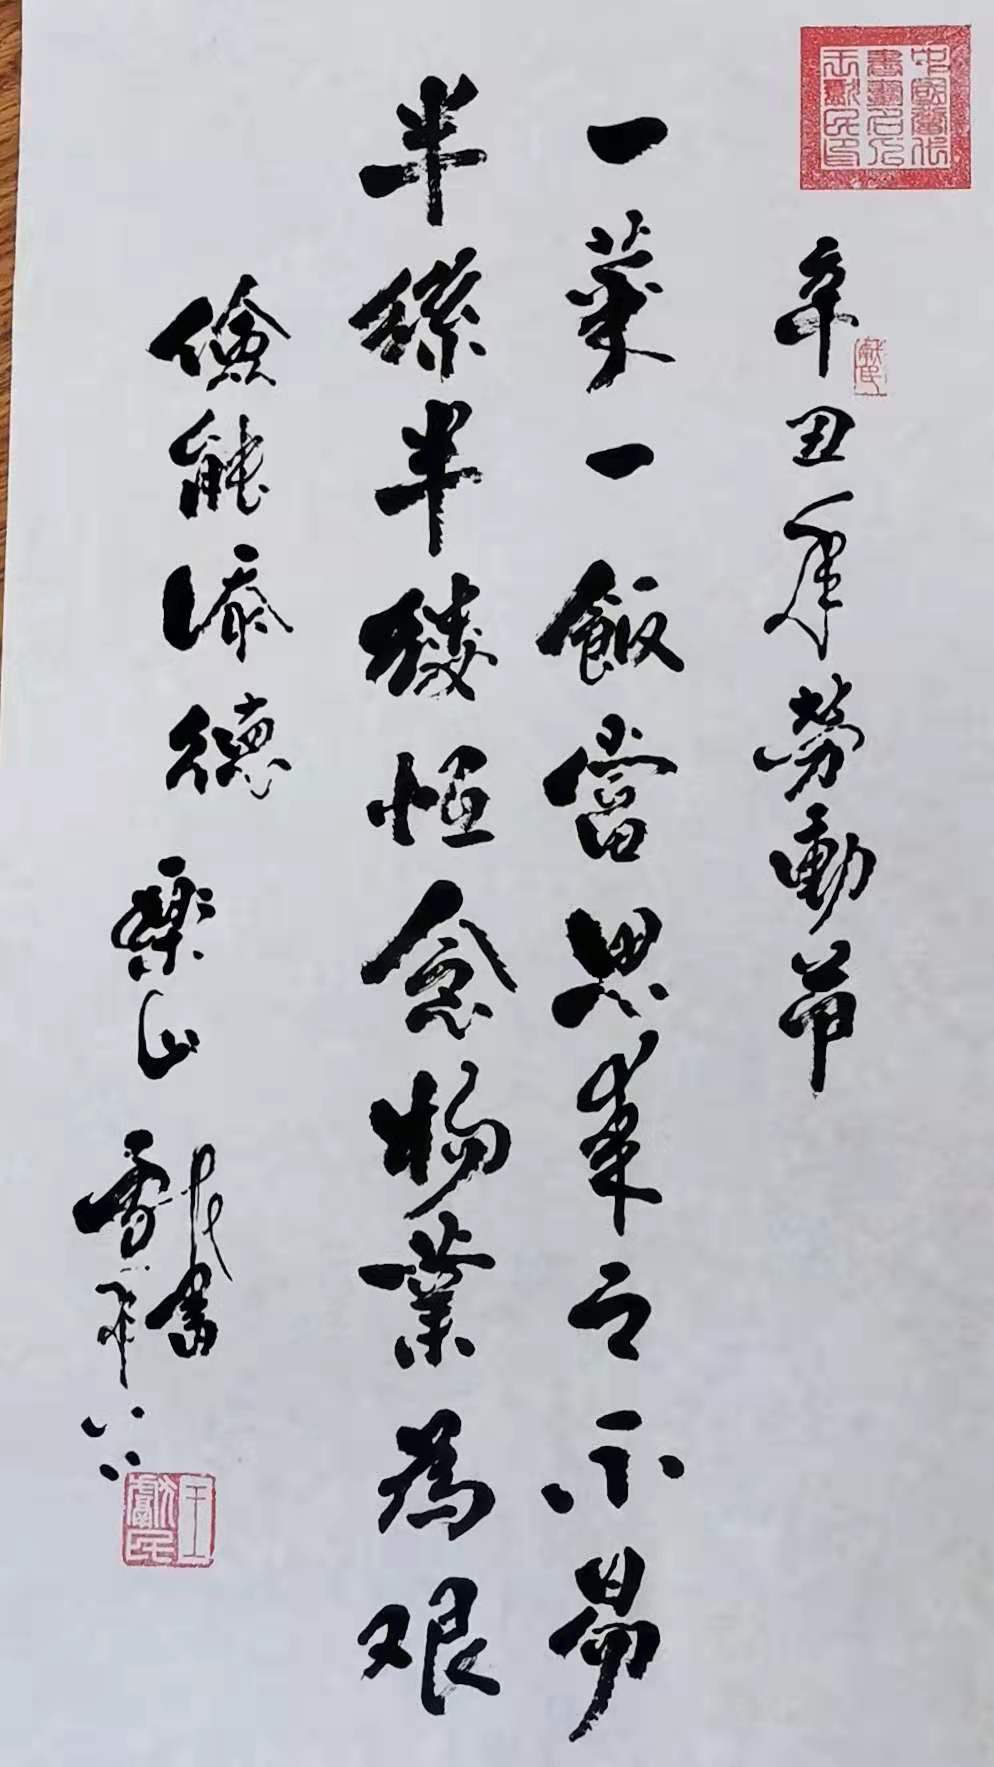 中國當代
書畫名人
王獻民印
獻民
辛丑年勞動節
一菜一飯當思來之不易
半絲半縷恒念物業為艰
儉能添德
樂山
獻民書
王獻民